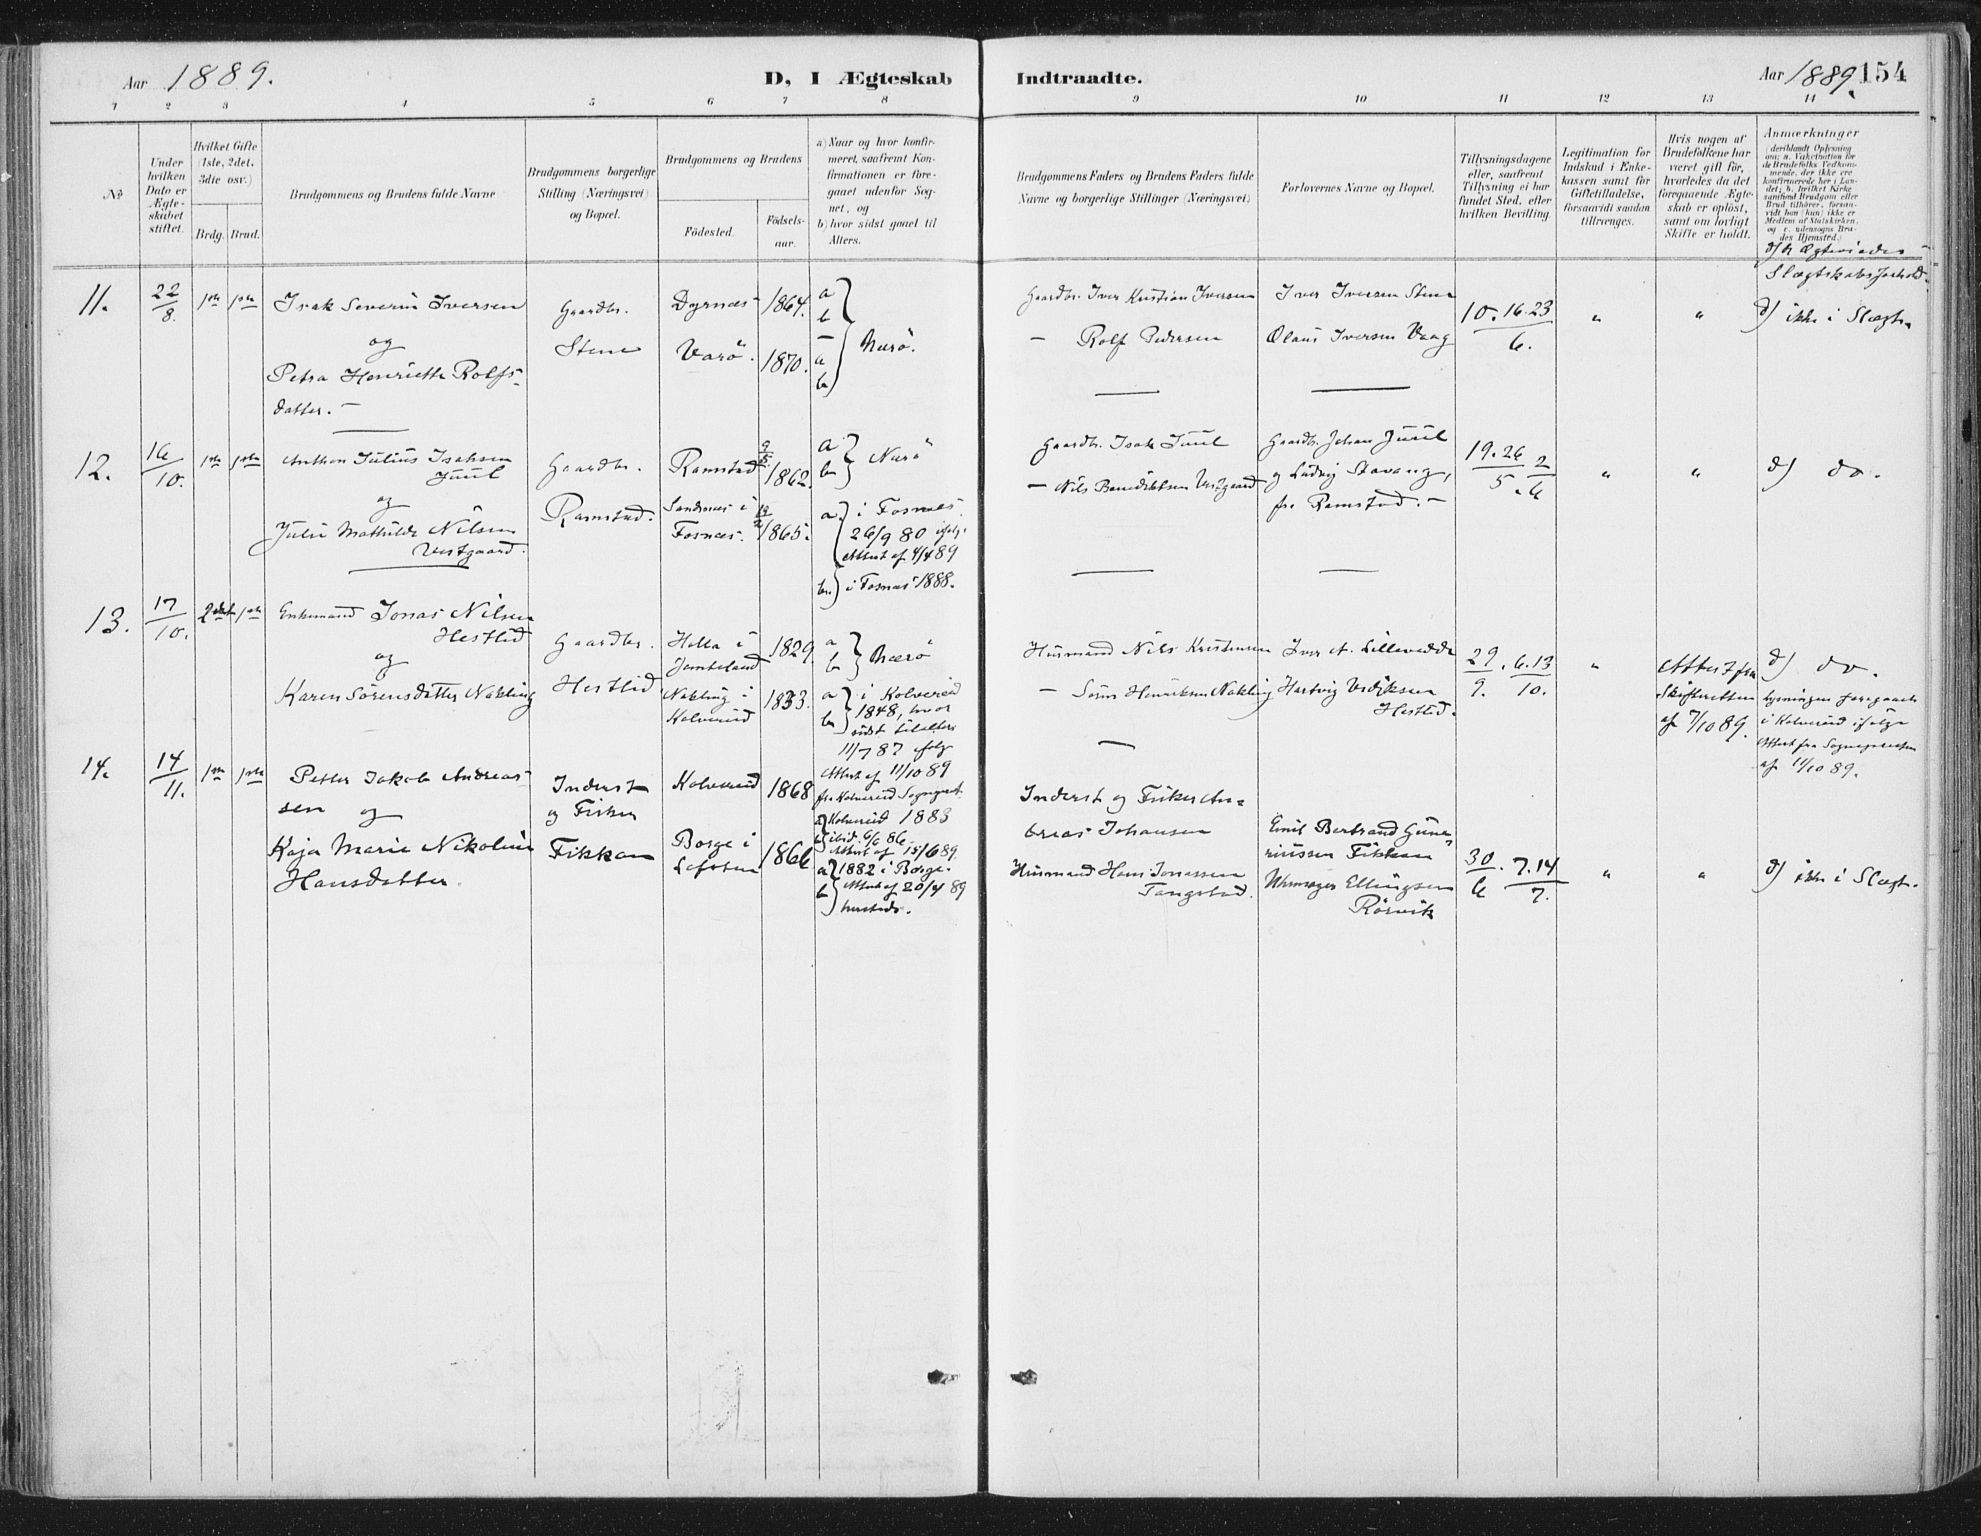 Aar 1889.
D, I Ægteskab
Indtraadte.
Aar 1889. 154
1 2 3 4 5 6 7 8 9 10 11 12 13 14
No
Under hvilken Dato er Ægteskabet stiftet.
Hvilket Gifte (1ste, 2det, 3die osv.)
Brdg. Brud.
Brudgommens og Brudens fulde Navne
Brudgommens borgerlige Stilling (Næringsvei) og Bopæl.
Brudgommens og Brudens
Födested.
Födselsaar.
a) Naar og hvor konfirmeret, saafremt Konfirmationen er foregaaet udenfor Sognet, og
b) hvor sidst gaaet til Alters.
Brudgommens Faders og Brudens Faders fulde Navne og borgerlige Stillinger (Næringsvei)
Forlovernes Navne og Bopæl.
Tillysningsdagene eller, saafremt Tillysning ei har fundet Sted, efter hvilken Bevilling.
Legitimation for Indskud i Enkekassen samt for Giftetilladelse, forsaavidt saadan tiltrænges.
Hvis nogen af Brudefolkene har været gift før, hvorledes da det foregaaende Ægteskab er opløst, samt om lovligt Skifte er holdt.
Anmærkninger
(deriblandt Oplysning om: a. Vakcination for de Brudefolks Vedkommende, der ikke ere konfirmerede her i Landet; b. hvilket Kirkesamfund Brudgom eller Brud tilhører, forsaavidt han (hun) ikke er Medlem af Statskirken, og c. udensogns Brudes Hjemsted.)
d) de Ægteviedes Slægtskabsforhold.
11.
22/8.
1ste 1ste
Isak Severin Iversen
og
Petra Henriette Rolfsdatter. —
Gaardbr.
Stene
Dyrnæs 1864.
Varö. 1870.
a
b
a
b
Nærö.
Gaardbr. Iver Kristian Iversen
— Rolf Pedersen
Iver Iversen Stene
Olaus Iversen Vaag
10. 16. 23
6.
" "
d) ikke i Slægt.
12.
16/10.
1ste 1ste
Anthon Julius Isaksen
Juul
og
Julie Mathilde Nilsen
Vestgaard.
Gaardbr.
Ramstad.
Ramstad 9/5 1862.
Sandnæs i
Fosnæs. 1865.
a
b
Nærö
a. i Fosnæs
26/9 80 ifølge
Attest af 4/4 89
b. i Fosnæs 1888.
Gaardbr. Isak Juul
— Nils Benediktsen Vestgaard
Gaardbr. Johan Juul
og Ludvig Stavang,
fra Ramstad. —
19. 26 2
5. 6
" "
d) do.
13.
17/10.
2det 1ste
Enkemand Jonas Nilsen
Hestlid
og
Karen Sörensdatter Nakling
Gaardbr.
Hestlid
Holla i
Jemteland 1829.
Nakling i
Kolvereid 1833.
a
b
Nærö
a i Kolvereid
1848, hvor
b sidst tilalters
11/7 87 ifølge
Attest af 11/10 89
fra Kolvereid Sognepræst.
Husmand Nils Kristensen
— Sören Henriksen Nakling
Iver A. Lillevedde
Hartvig Vediksen
Hestlid.
29. 6. 13
9. 10.
"
Attest fra
Skifteretten
af 7/10 89.
d) do.
Lysningen foregaaet
i Kolvereid ifølge
Attest fra Sognepræsten
af 11/10 89.
14.
14/11.
1ste 1ste
Petter Jakob Andreassen
og
Kaja Marie Nikoline
Hansdatter.
Inderst
og Fisker
Fikkan
Kolvereid 1868
Borge i
Lofoten 1866
a Kolvereid 1883
b ibid. 6/6 86.
Attest af 15/6 89.
a 1882 i Borge.
b Attest af 20/4 89
hersteds.
Inderst og Fisker Andreas
Johansen
Husmand Hans Jonassen
Tangstad.
Emil Bertrand Gunneriussen
Fikkan
Ellingsen
Rörvik
30. 7. 14
6 7.
" "
d) ikke i Slægt.